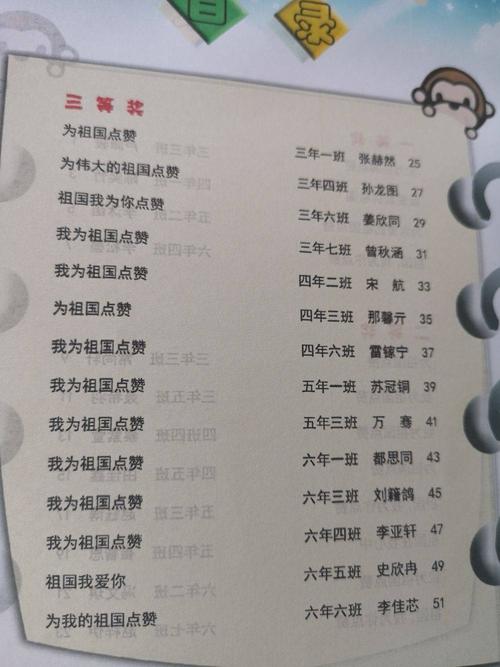 目录
三等奖
为祖国点赞 三年一班 张赫然 25
为伟大的祖国点赞 三年四班 孙龙图 27
祖国我为你点赞 三年六班 姜欣同 29
我为祖国点赞 三年七班 曾秋涵 31
我为祖国点赞 四年二班 宋 航 33
为祖国点赞 四年三班 那馨亓 35
我为祖国点赞 四年六班 雷镓宁 37
我为祖国点赞 五年一班 苏冠铜 39
我为祖国点赞 五年三班 万 骞 41
我为祖国点赞 六年一班 都思同 43
我为祖国点赞 六年三班 刘籍鸽 45
我为祖国点赞 六年四班 李亚轩 47
祖国我爱你 六年五班 史欣冉 49
为我的祖国点赞 六年六班 李佳芯 51